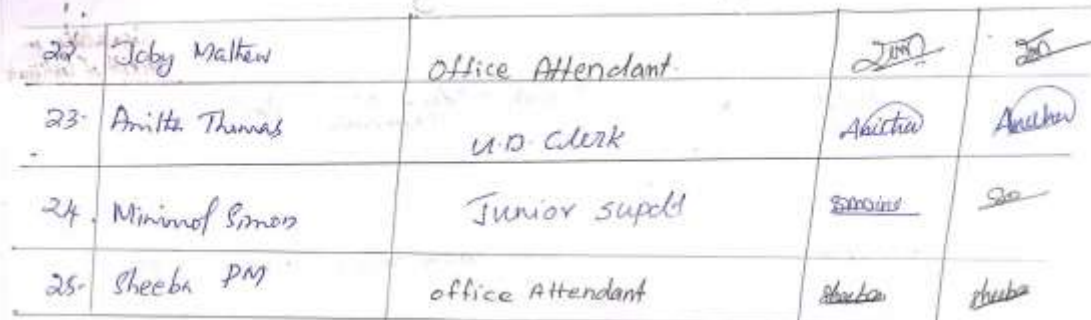 22. Joby Mathew Office Attendant.
23. Anitha Thomas U.D. Clerk Anitha Anitha
24. Minimol Simon Junior Supdt
25. Sheeba PM office Attendant Sheeba Sheeba